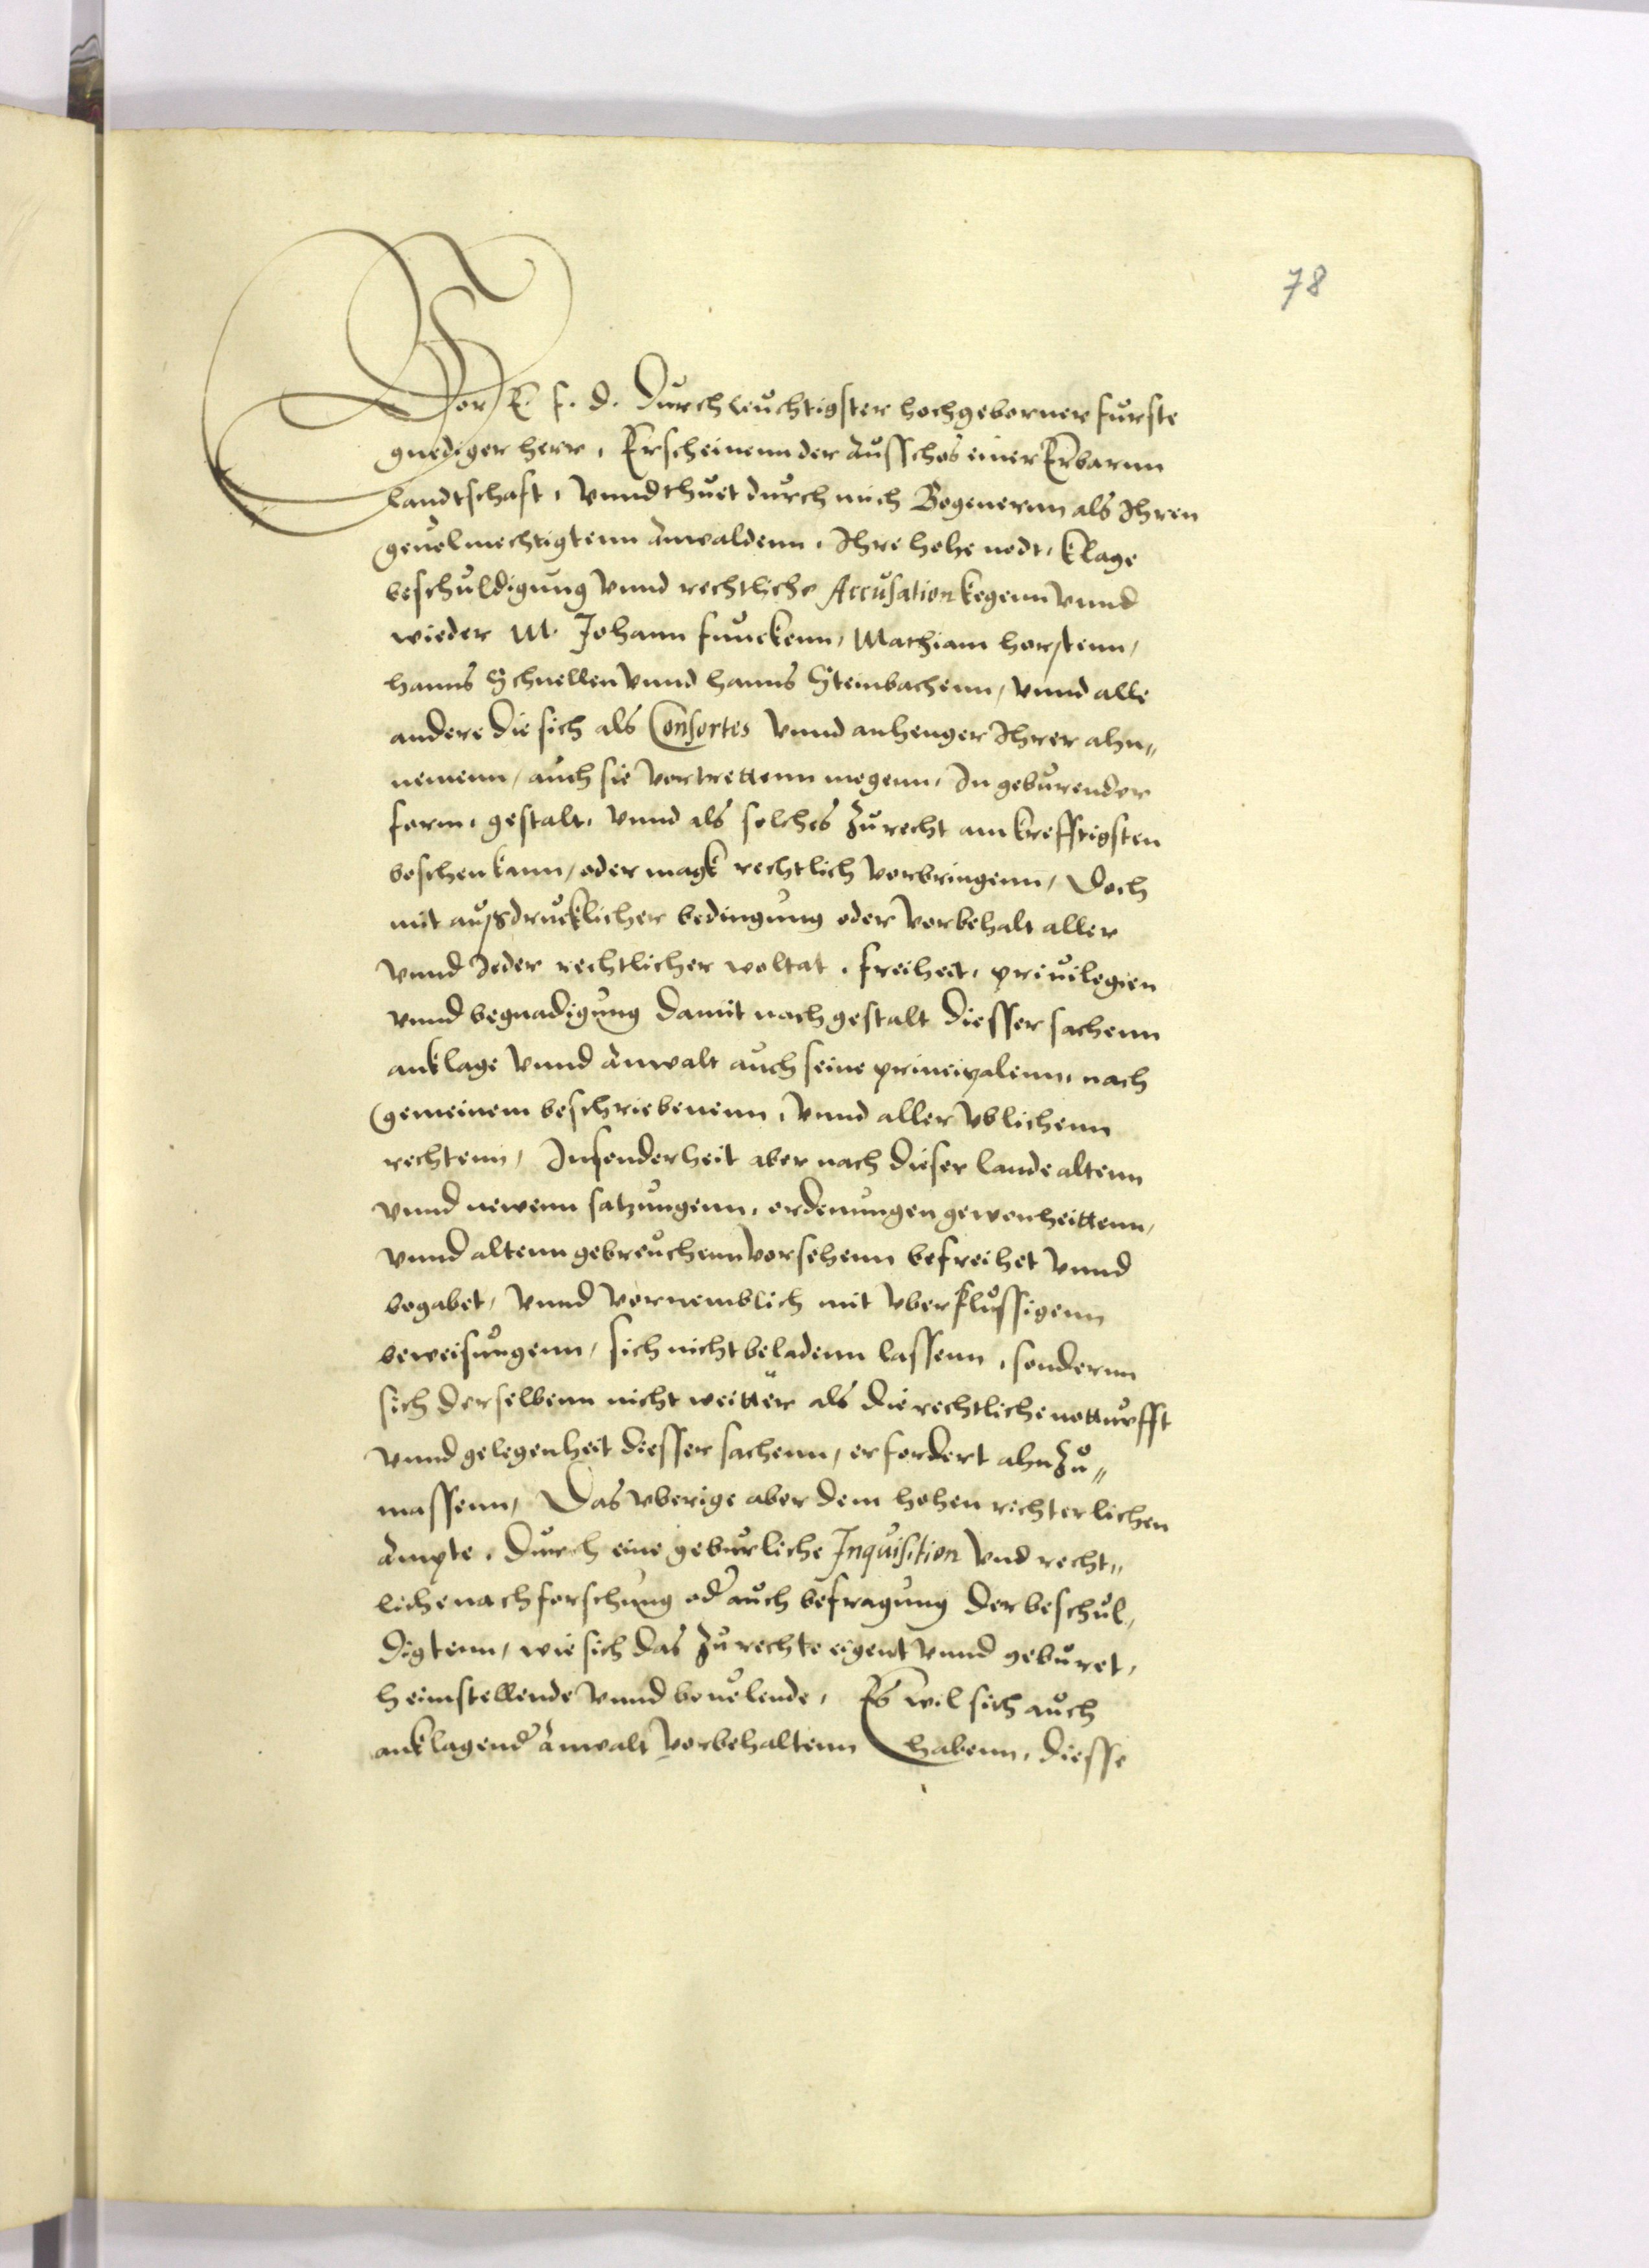 78
Vor E. f. d. Durchleuchtigster hochgeborner furste
gnediger herr, Erscheinenn der ausschos einer Erbarnn
landtschaft, vnnd thuet durch mich Bogenernn als Ihren
geuolmechtigtenn Anwaldenn, Ihre hohe nodt, klage
beschuldigung vnnd rechtliche Accusation kegenn vnnd
wieder M. Johann funckenn, Mathiam horstenn,
hanns Schnellen vnnd hanns Steinbachenn, vnnd alle
andere die sich als Consortes vnnd anhenger Ihrer ahn„
nemenn, auch sie vortrettenn megenn, In geburender
form, gestalt, vnnd als solches zu recht am krefftigsten
beschen kann, oder magk rechtlich vorbringenn, Doch
mit außdrucklicher bedingung oder vorbehalt aller
vnnd Jeder rechtlicher woltat, freiheit, priuilegien
vnnd begnadigung damit nach gestalt diesser sachenn
anklage vnnd Anwalt auch seine principalenn, nach
gemeinem beschriebenenn, vnnd aller vblichenn
rechtenn, Insonderheit aber nach dieser lande altenn
vnnd newenn satzungenn, ordenungen gewonheittenn,
vnnd altenn gebreuchenn vorsehenn befreihet vnnd
begabet, vnnd vornemblich mit vberflussigenn
beweisungenn, sich nicht beladenn lassenn, sondernn
sich derselbenn nicht weitter als die rechtliche notturfft
vnnd gelegenheit diesser sachenn, erfordert ahnzu„
massenn, Das vberige aber dem hohen richterlichen
Ampte, durch eine geburliche Inquisition vnd recht„
liche nachforschung od auch befragung der beschul„
digtenn, wie sich das zu rechte eigent vnnd geburet,
heimstellende vnnd beuelende, Es wil sich auch
anklagend Anwalt vorbehaltenn habenn, diesse